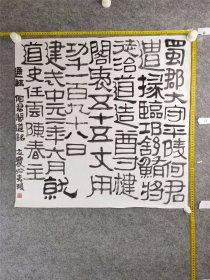 蜀郡大守平陵何君
遣掾臨邛舒鮪將
徒治道造尊楗
閣袤五十五丈用
功千一百九十八日
建武中元二年六月就
道史任雲陳春主
何君閣道銘